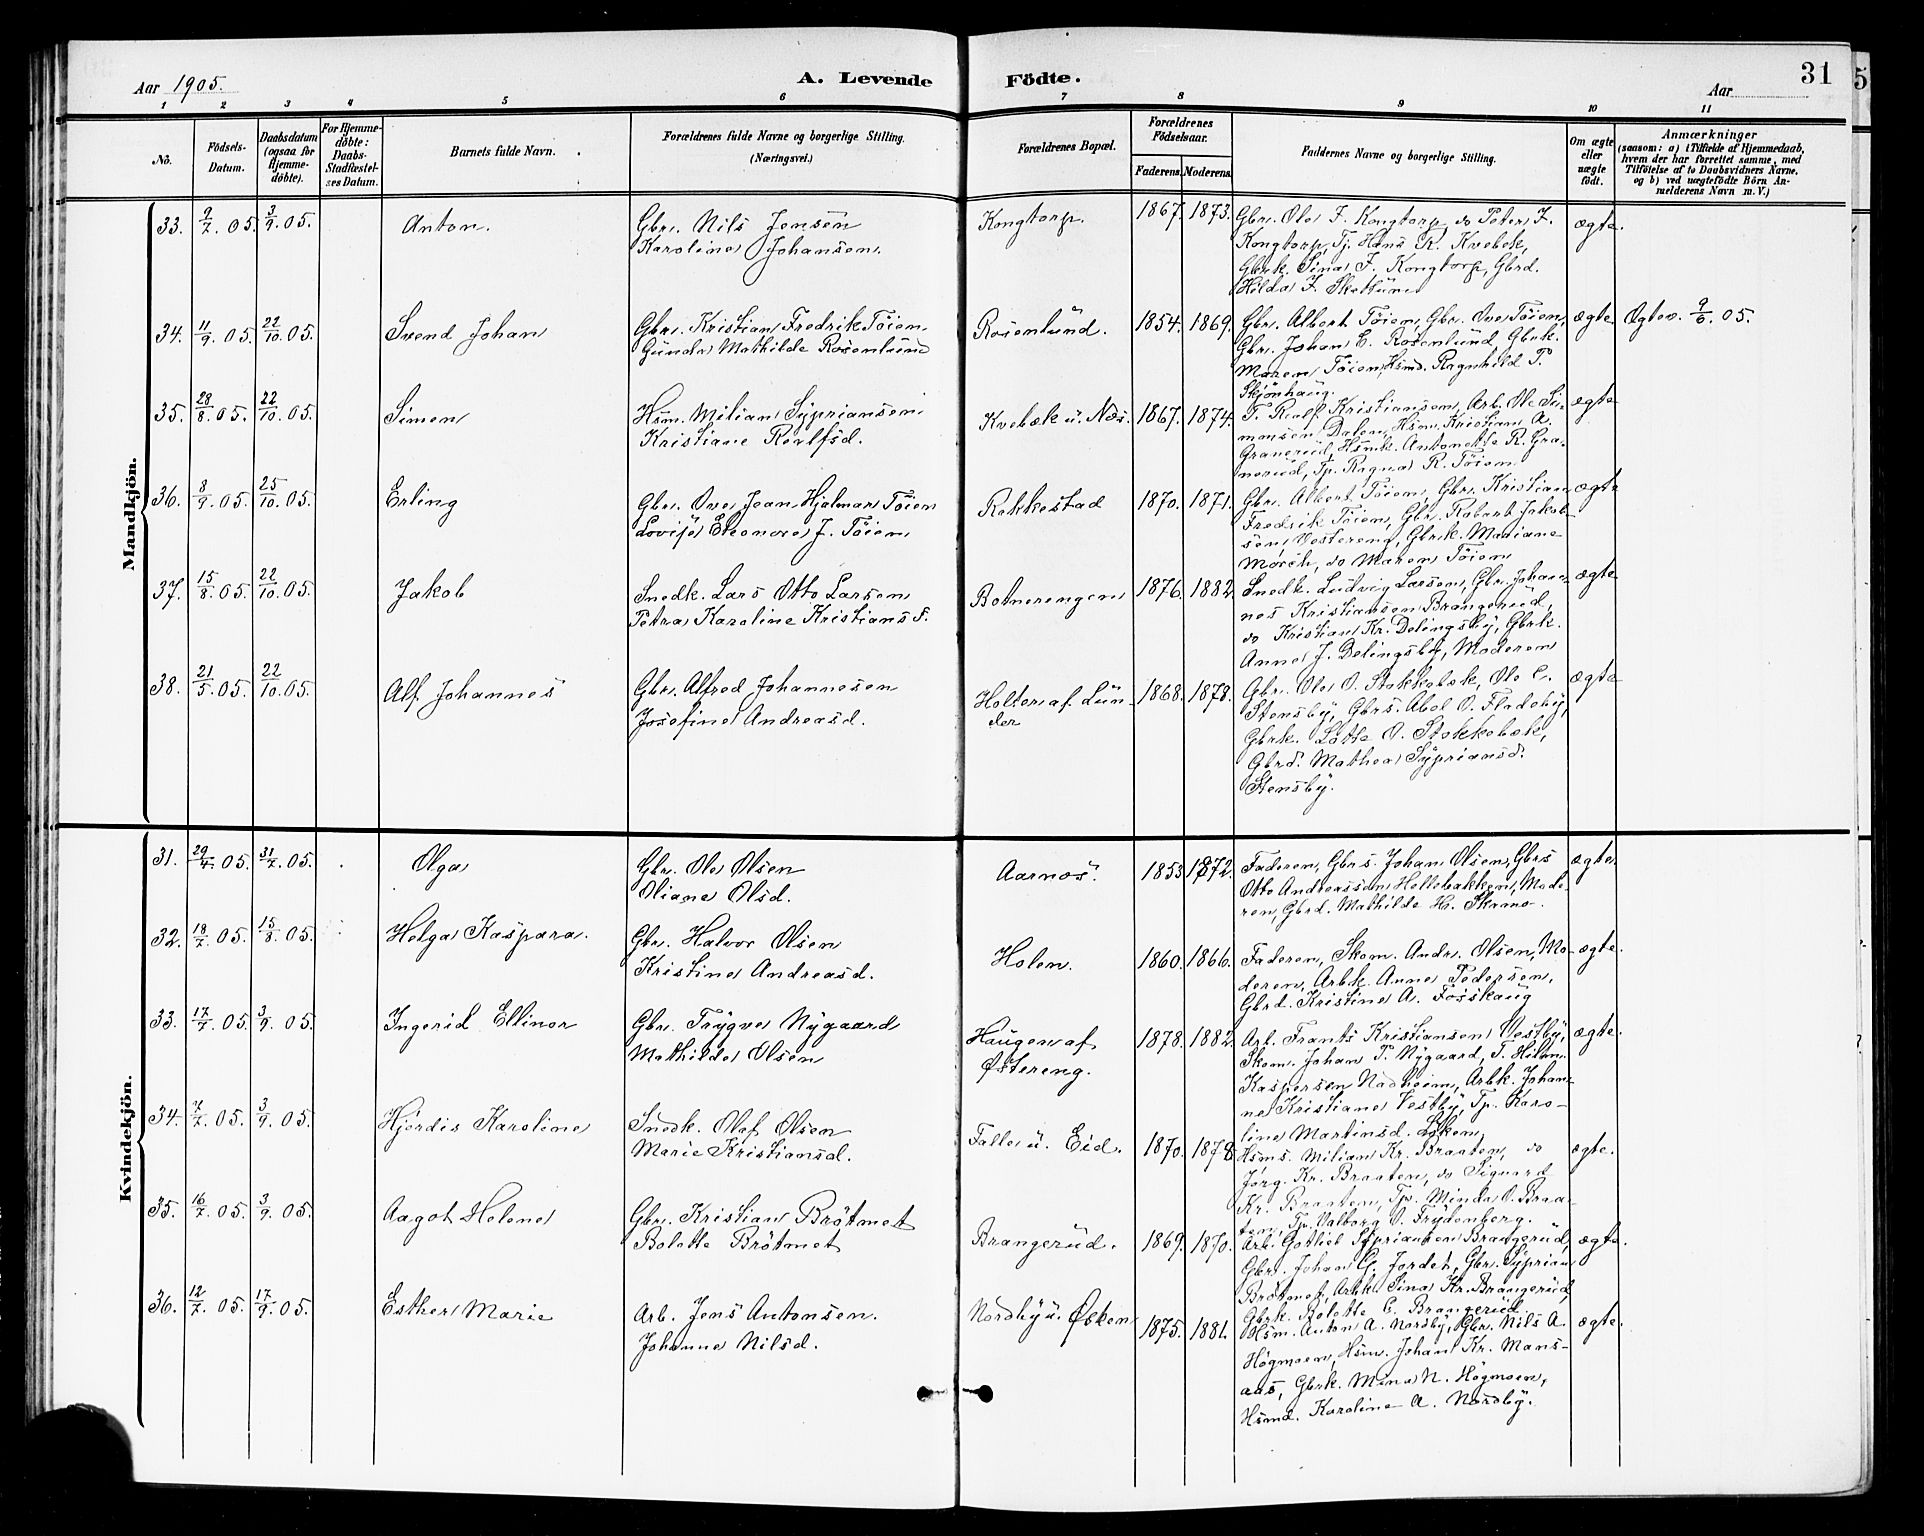 Aar 1905.
A. Levende Födte.
Aar
31
1 2 3 4 5 6 7 8 9 10 11
No.
Födsels-Datum.
Daabsdatum (ogsaa for Hjemme-döbte).
For Hjemme-döbte: Daabs-Stadfæstel-ses Datum.
Barnets fulde Navn.
Forældrenes fulde Navne og borgerlige Stilling. (Næringsvei.)
Forældrenes Bopæl.
Forældrenes Födselsaar.
Faderens. Moderens.
Faddernes Navne og borgerlige Stilling.
Om ægte eller uægte födt.
Anmærkninger
(saasom: a) i Tilfælde af Hjemmedaab, hvem der har forrettet samme, med Tilföielse af to Daabsvidners Navne, og b) ved uægtefödte Börn An-melderens Navn m. V.)
Mandkjön.
33. 9/7. 05. 3/9. 05. Anton.
Gbr. Nils Jensen
Karoline Johansen.
Kongtorp. 1867. 1873.
Gbr. Ole F. Kongtorp, do Peter F.
Kongtorp, Tj. Hans K. Kvebek,
Gbrk. Sina F. Kongtorp, Gbrd.
Hilda F. Skottüne
ægte.
34. 11/9. 05. 22/10. 05. Svend Johan
Gbr. Kristian Fredrik Töien
Gunda Mathilde Rosenlund
Rosenlund. 1854. 1869.
Gbr. Albert Töien, Gbr. Ove Töien,
Gbr. Johan E. Rosenlund, Gbrk.
Maren Töien, Hsmd. Ragnhild P.
Skjönhaug.
ægte. Ægtev. 9/6. 05.
35. 28/8. 05. 22/10. 05. Simen
Hsm. Milian Sypriansen
Kristiane Roalfsd.
Kvebæk u. Næs. 1867. 1874.
T. Roalf Kristiansen, Arb. Ole Si-
monsen Dalen, Hsm. Kristian A.
Granerud, Hsmk. Antonette R. Gra-
nerud, Tp. Ragna R. Töien
ægte
36. 8/9. 05. 25/10. 05. Erling
Gbr. Ove Jean Hjalmar Töien
Lovise Eleonore J. Töien
Rakkestad 1870. 1871.
Gbr. Albert Töien, Gbr. Kristian
Fredrik Töien, Gbr. Robert Jakob-
sen Vestereng, Gbrk. Mariane
Mörch, do Maren Töien
ægte
37. 15/8. 05. 22/10. 05. Jakob
Snedk. Lars Otto Larsen
Petra Karoline Kristians d.
Botnerengen 1876. 1882.
Snedk. Ludvig Larsen, Gbr. Johan-
nes Kristiansen Brangerud,
do Kristian Kr. Delingsby, Gbrk.
Anne J. Delingsby, Moderen
ægte
38. 21/5. 05. 22/10. 05. Alf Johannes
Gbr. Alfred Johannesen
Josefine Andreasd.
Holter af Lun-
der
1868. 1878.
Gbr. Ole O. Stokkebæk, Ole C.
Stensby, Gbrs. Abel O. Fladeby,
Gbrk. Lotte O. Stokkebæk,
Gbrd. Mathea Sypriansd.
Stensby.
ægte
Kvindekjön.
31. 29/4. 05. 31/7. 05. Olga
Gbr. Ole Olsen
Oliane Olsd.
Aarnæs. 1853 1872.
Faderen, Gbrs. Johan Olsen, Gbrs
Otto Andreassen Holtebakken, Mode-
ren, Gbrd. Mathilde H. Skramo.
ægte
32. 18/7. 05. 15/8. 05. Helga Kaspara.
Gbr. Halvor Olsen
Kristine Andreasd.
Holen. 1860. 1866.
Faderen, Skom. Andr. Olsen, Mo-
deren, Arbk. Anne Pedersen,
Gbrd. Kristine A. Fosshaug
ægte.
33. 17/7. 05. 3/9. 05. Ingerid Ellinor
Gbr. Trygve Nygaard
Mathilde Olsen
Haugen af
Østereng.
1878. 1882.
Arb. Frants Kristiansen Vestby,
Skom. Johan P. Nygaard, T. Hilm.
Kaspersen Nadheim, Arbk. Johan-
ne Kristiane Vestby, Tp. Karo-
line Martinsd. Løken
ægte.
34. 7/7. 05. 3/9. 05. Hjördis Karoline
Snedk. Olaf Olsen
Marie Kristiansd.
Falle u. Eid. 1870. 1878
Hsms. Milian Kr. Braaten, do
Jörg. Kr. Braaten, do Sigvard
Kr. Braaten, Tp. Minda O. Braa-
ten, Tp. Valborg O. Frydenberg.
ægte.
35. 16/7. 05. 3/9. 05. Aagot Helene
Gbr. Kristian Brötmet
Bolette Brötmet
Brangerud. 1869. 1870.
Arb. Gotlieb Syprianssen Brangerud,
Gbrs. Johan G. Jordet, Gbr. Syprian
Brötmet, Arbk. Sina Kr. Brangerud,
Gbrk. Bolette G. Brangerud
ægte.
36. 12/7. 05. 17/9. 05. Esther Marie
Arb. Jens Antonsen.
Johanne Nilsd.
Nordby u. Øsken 1875. 1881.
Hsm. Anton A. Nordby, Gbr. Nils A.
Högmoen, Hsm. Johan Kr. Mans-
aas, Gbrk. Mina N. Högmoen,
Hsmd. Karoline A. Nordby.
ægte.